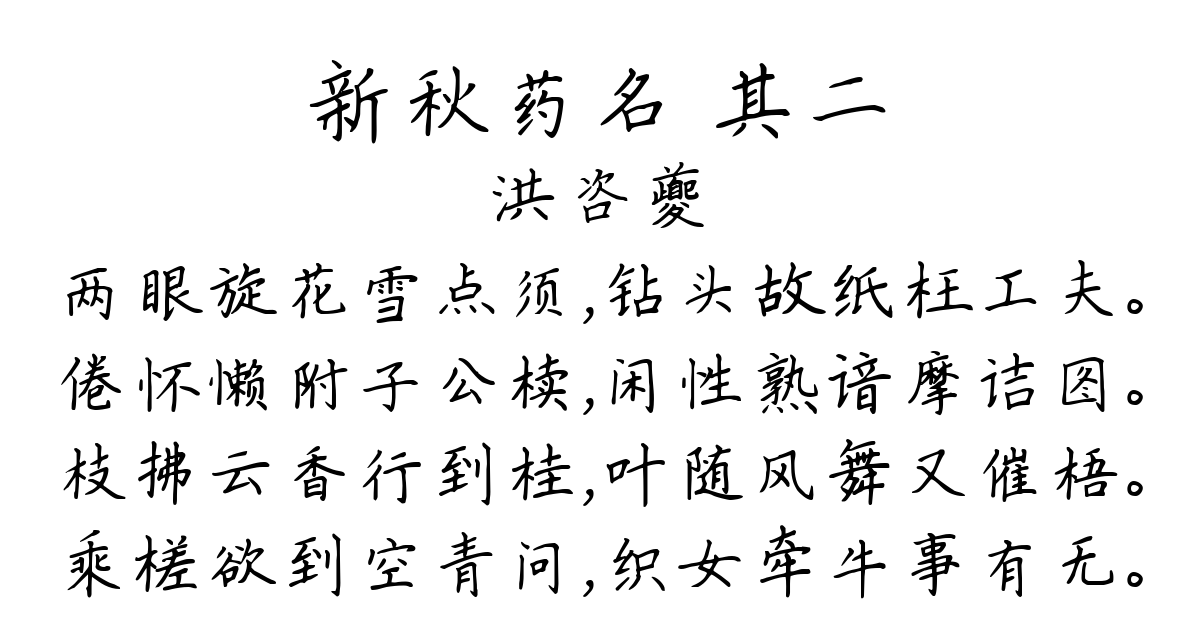 新秋药名 其二
洪咨夔
两眼旋花雪点须,钻头故纸枉工夫。
倦怀懒附子公椟,闲性熟谙摩诘图。
枝拂云香行到桂,叶随风舞又催梧。
乘槎欲到空青问,织女牵牛事有无。